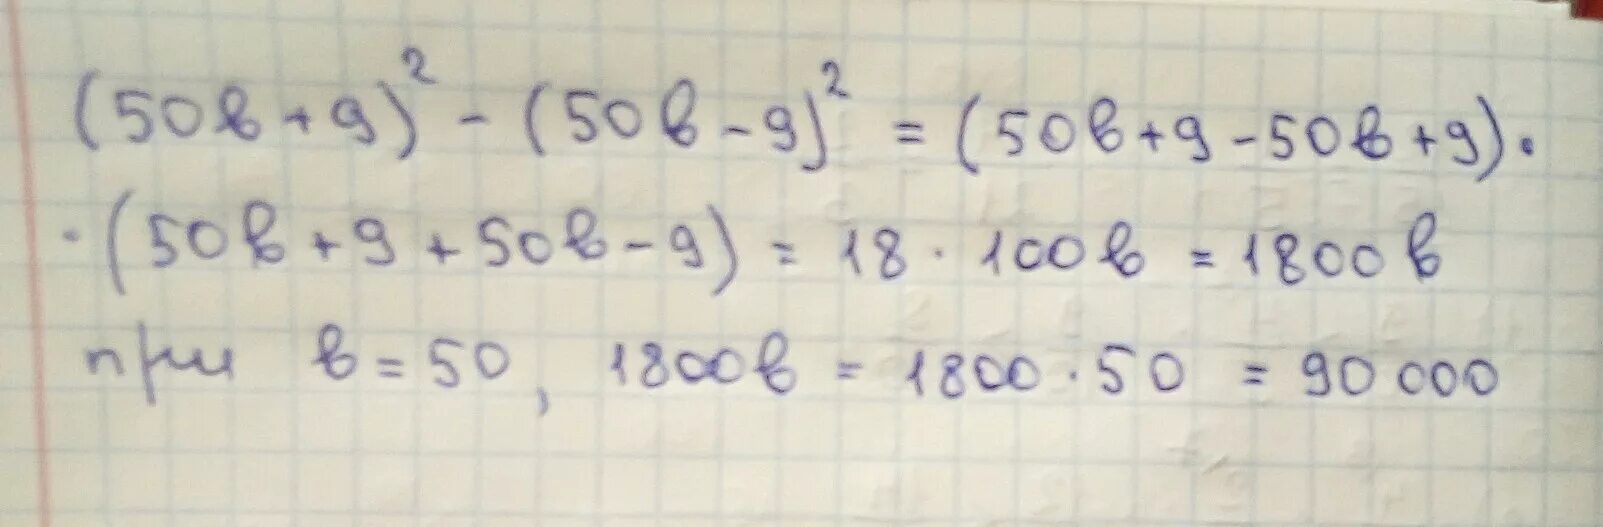 (50в+9)² - (50в-9)² = (50в+9-50в+9)·
·(50в+9+50в-9) = 18·100в = 1800в
при в=50, 1800в = 1800·50 = 90 000